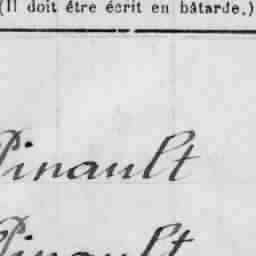 (Il doit être écrit en bâtarde.)
Pinault
Pinault